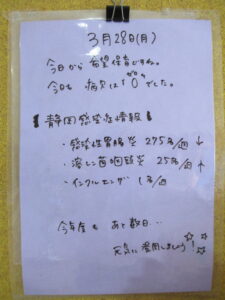 3月28日(月)
今日から希望保育ですね。
今日も病欠は"0"でした。
静岡感染症情報
・感染性胃腸炎 275名/週 ↓
・溶レン菌咽頭炎 25名/週 ↑
・インフルエンザ 1名/週
今年度もあと数日…
元気に登園しましょう!